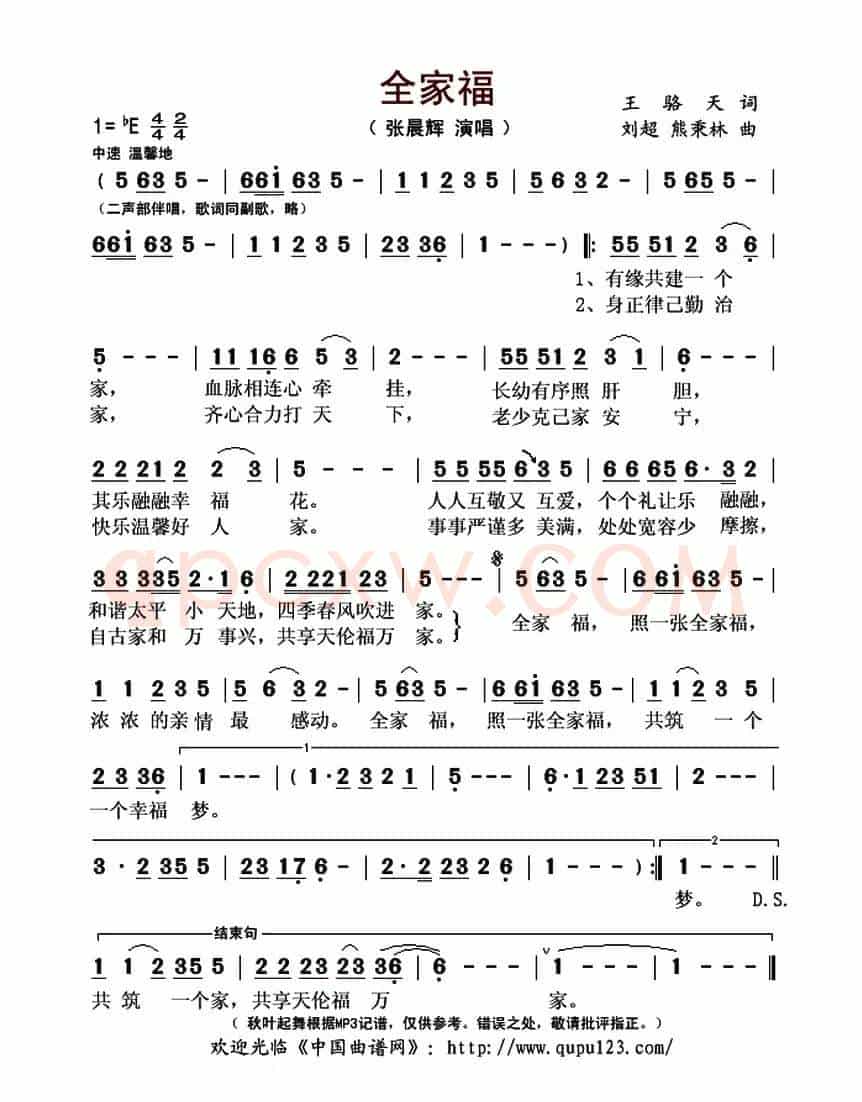 全家福
王 骆 天 词
1=♭E 4/4 2/4
（ 张晨辉 演唱 ）
刘超 熊秉林 曲
中速 温馨地
( 5 63 5 - | 661 63 5 - | 1 1 2 3 5 | 5 6 3 2 - | 5 65 5 - |
（二声部伴唱，歌词同副歌，略）
661 63 5 - | 1 1 2 3 5 | 23 36 | 1 - - ) ‖: 55 51 2 3 6 |
1、有缘共建一 个
2、身正律己勤 治
5 - - - | 11 16 6 5 3 | 2 - - - | 55 51 2 3 1 | 6 - - - |
家， 血脉相连心 牵 挂， 长幼有序照 肝 胆，
家， 齐心合力打 天 下， 老少克己家 安 宁，
2 2 21 2 2 3 | 5 - - - | 5 5 55 6 3 5 | 6 6 65 6· 3 2 |
其乐融融幸 福 花。 人人互敬又 互爱，个个礼让乐 融融，
快乐温馨好 人 家。 事事严谨多 美满，处处宽容少 摩擦，
3 3 335 2·1 6 | 2 221 23 | 5 - - - | 5 63 5 - | 6 61 63 5 - |
和谐太平 小 天地，四季春风吹进 家。 全家 福， 照一张全家福，
自古家和 万 事兴，共享天伦福万 家。
1 1 2 3 5 | 5 6 3 2 - | 5 63 5 - | 6 61 63 5 - | 1 1 2 3 5 |
浓 浓 的亲 情 最 感动。 全家 福， 照一张全家福， 共筑 一个
1
2 3 36 | 1 - - - | ( 1·2 3 2 1 | 5 - - - | 6·1 23 51 | 2 - - - |
一个幸福 梦。
2
3 · 2 35 5 | 23 17 6 - | 2·2 23 2 6 | 1 - - - ) :‖ 1 - - ‖
梦。 D.S.
结束句
1 1 2 35 5 | 2 2 23 23 36 | 6 - - | 1 - - - | 1 - - - ‖
共 筑 一个家，共享天伦福 万 家。
（ 秋叶起舞根据MP3记谱，仅供参考。错误之处，敬请批评指正。）
欢迎光临《中国曲谱网》：http://www.qupu123.com/
qpcxw.COM